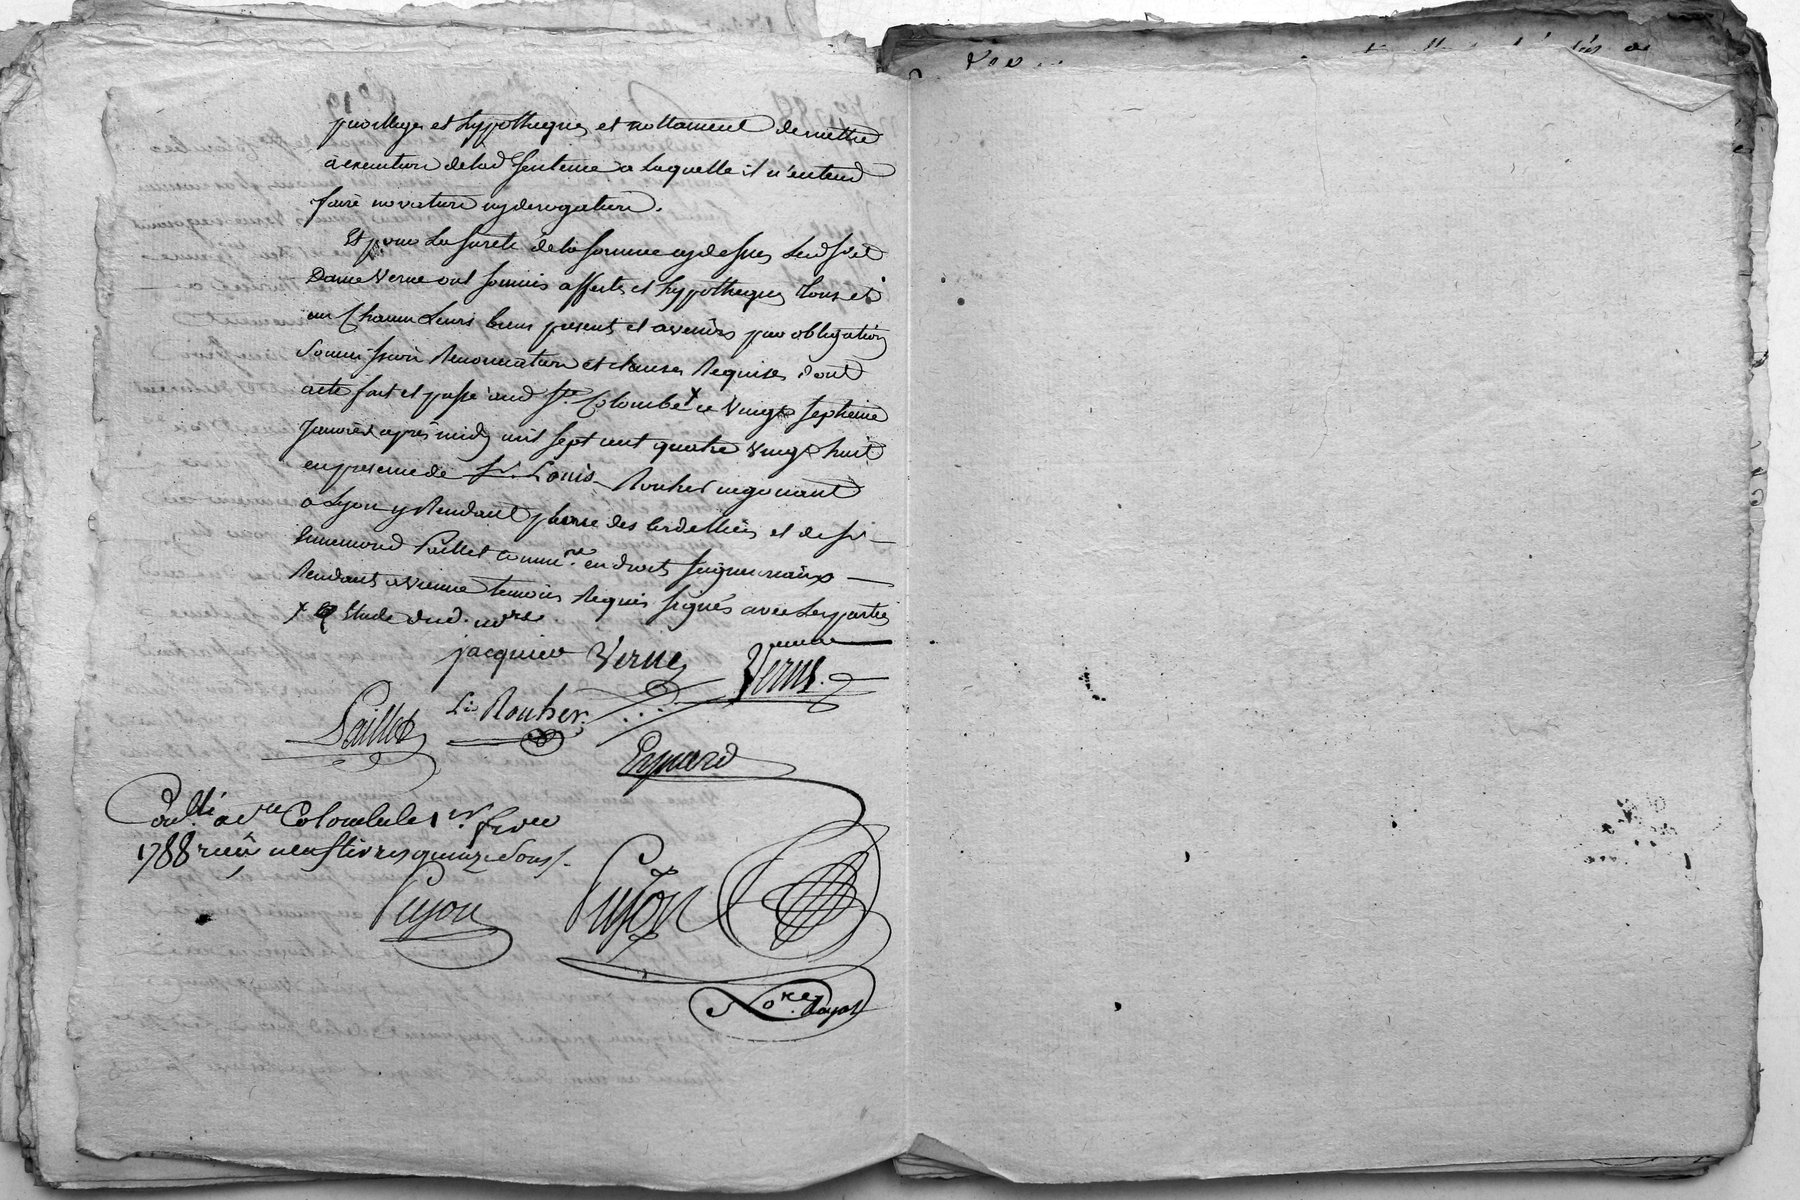 privileges et hyppotheques et nottament de mettre
a execution delad sentence a laquelle il n'entend
faire novation ny derogation.
Et pour la sureté de la somme cy dessus led sr et
Dame Verne ont soumis affectés et hyppotheques tous et
un chacun leurs biens presents et avenirs par obligation
soumission Renonciation et clauses Requises dont
acte fait et passé aud Ste Colombe x ce vingt septieme
Janvier après midy mil sept cent quatre vingt huit
en presence de sr. Louis Rouher negociant
a Lyon y Residant place des Cordelliers et de sr
Ennemond Paillet commre. en droits seigneuriaux
Residant a vienne temoins Requis signés avec les parties
x Etude dud. nore
jacquier Verne Verne
Paillet Ls Rouher
Eynard
Conllé a Ste Colombe le 1er. fevrier
1788 reçu neuf livres quinze sous
Pujon Pujon
Nore Royal